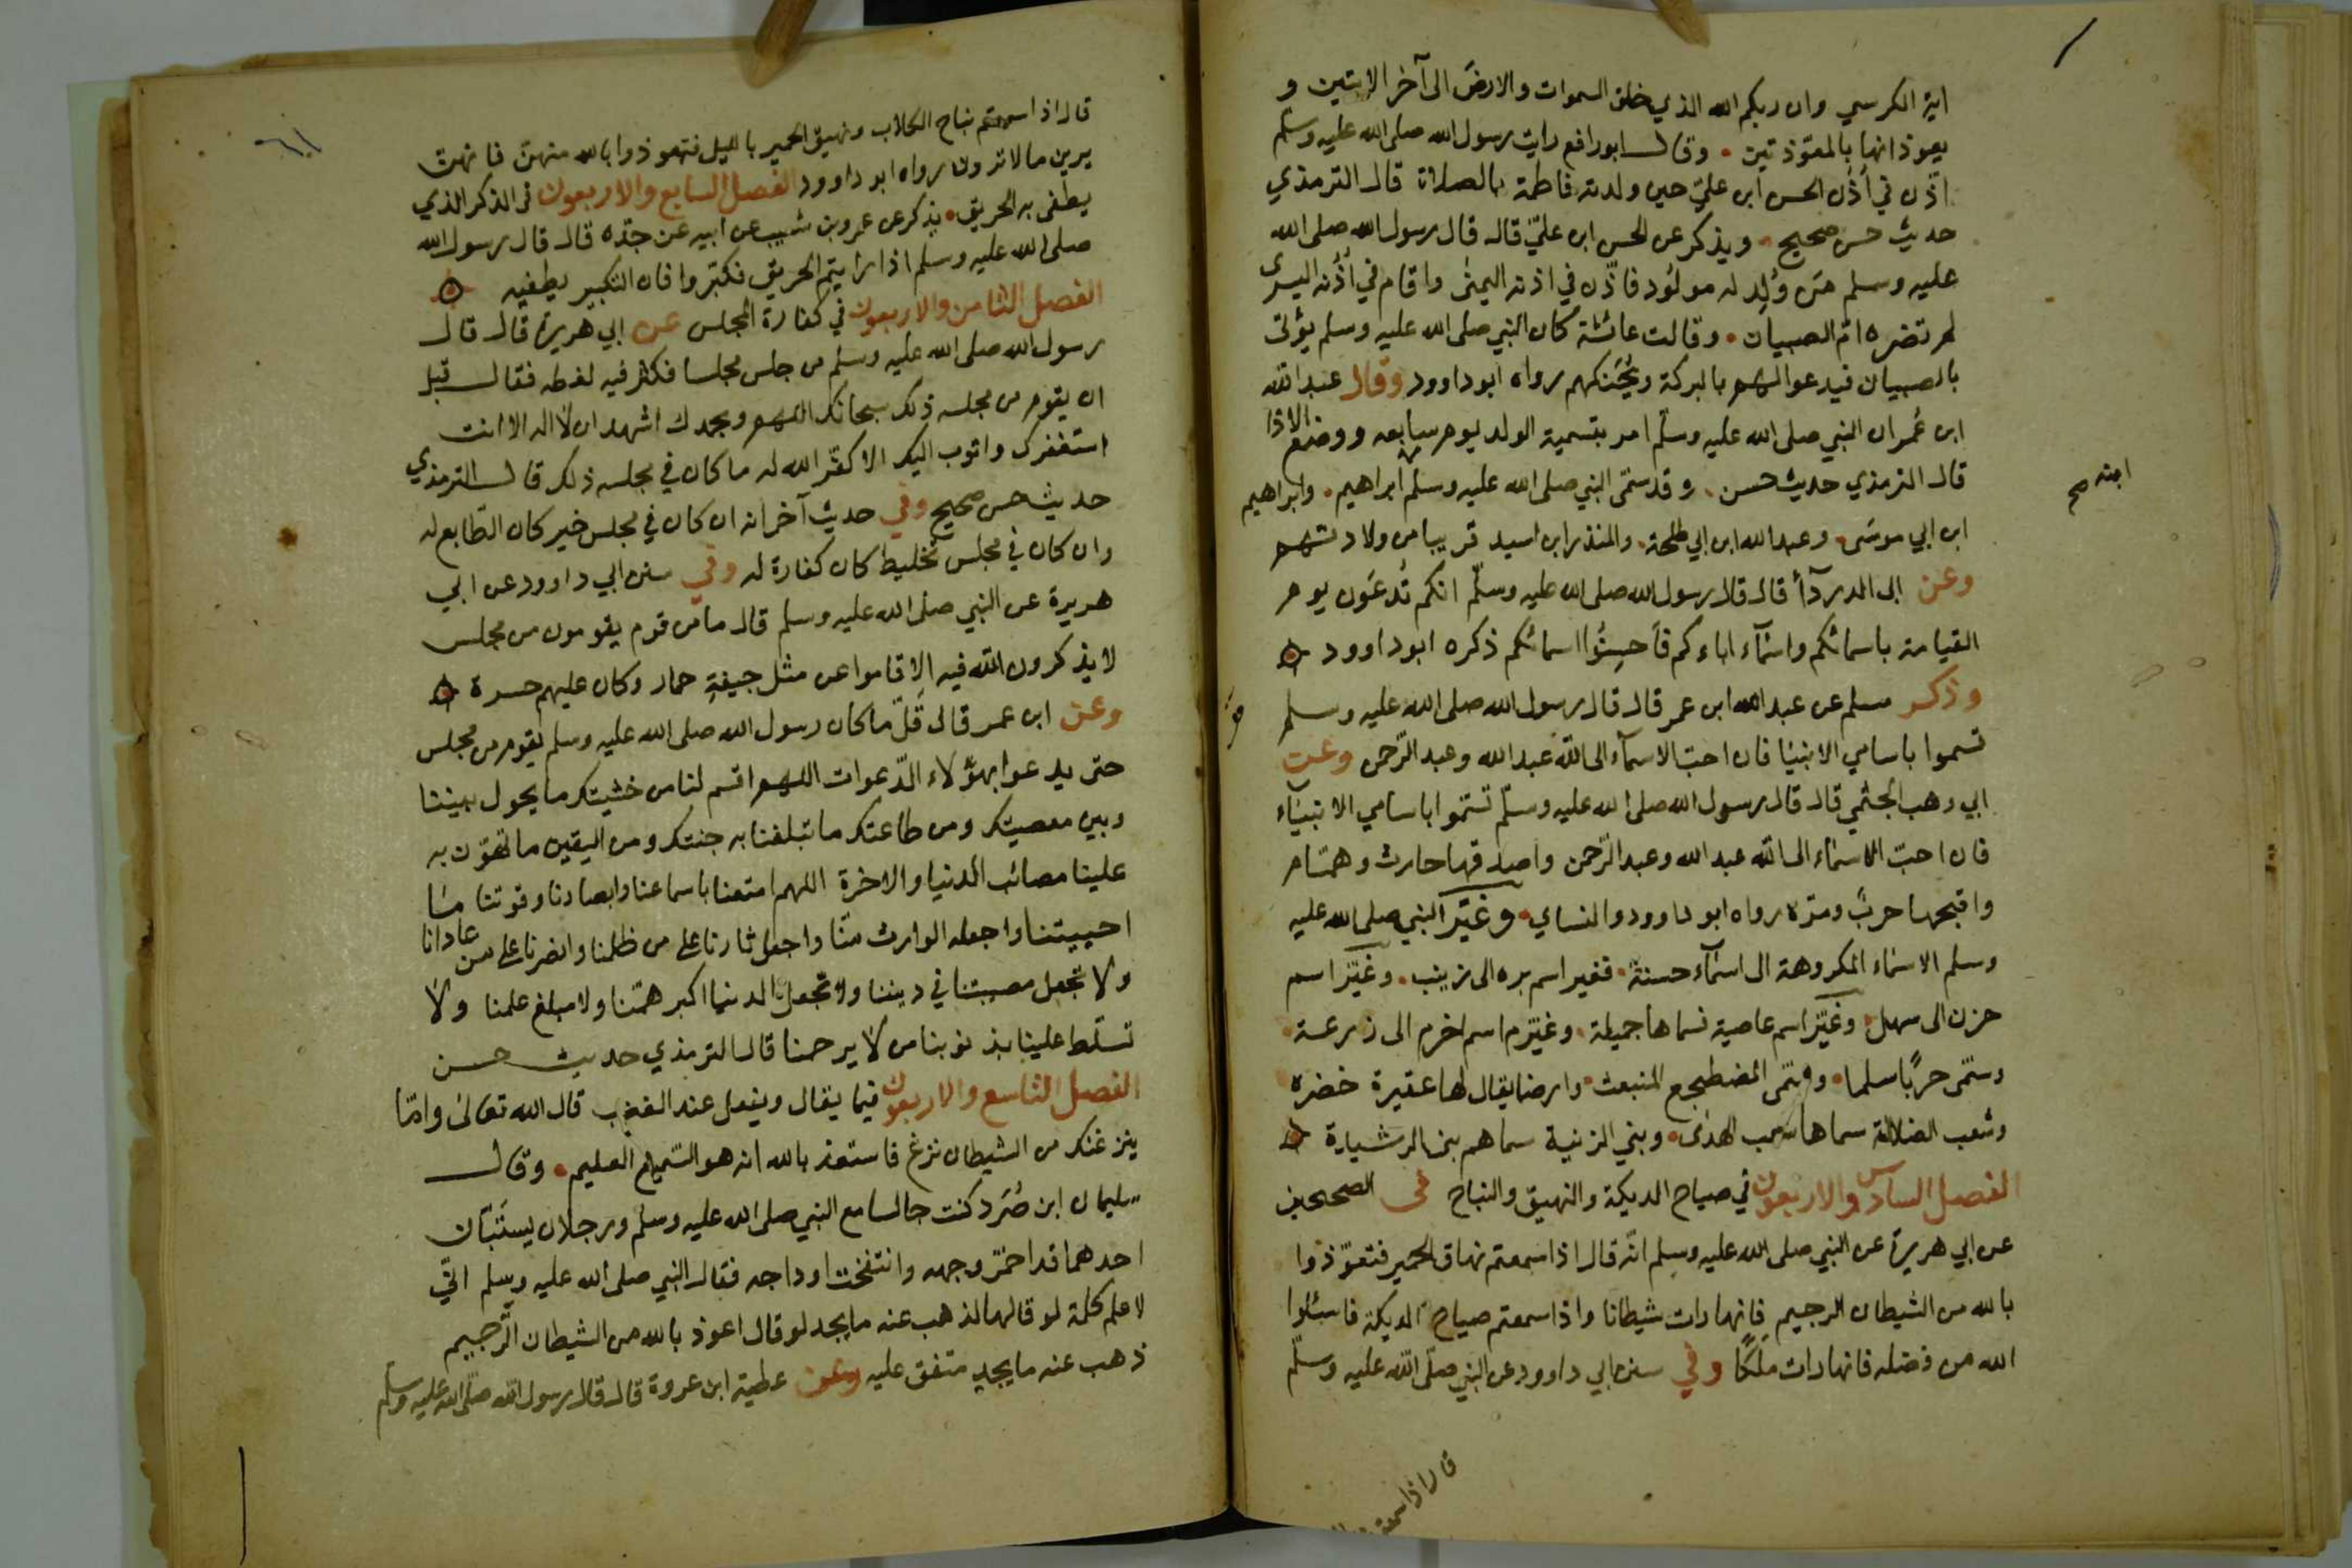 اية الكرسي وان ربكم الله الذي خلق السموات والارض الى آخر الايتين و
يعوذانها بالمعوّذتين • وقال ابورافع رايت رسول الله صلى الله عليه وسلم
اذّن في أذُن الحسن ابن عليّ حين ولدته فاطمة بالصلاة قال الترمذي
حديث حسن صحيح • ويذكر عن الحسن ابن عليّ قال قال رسول الله صلى الله
عليه وسلم من وُلِد له مولُود فاذّن في اذنه اليمنى واقام في أذُنه اليسرى
لم تضره امّ الصبيان • وقالت عائشة كان النبي صلى الله عليه وسلم يؤتى
بالصبيان فيدعوا لهم بالبركة ويُحَنكهم رواه ابوداوود وقال عبد الله
ابن عُمر ان النبي صلى الله عليه وسلم امر بتسمية الولد يوم سابعه ووضع الاذا
قال الترمذي حديث حسن • وقد سمّى النبي صلى الله عليه وسلم ابراهيم • وابراهيم
ابنه صح
ابن ابي موسَى • وعبد الله ابن ابي طلحة • والمنذر ابن اسيد قريبا من ولادتهم
وعن ابى الدردآأ قال قال رسول الله صلى الله عليه وسلّم انكم تُدعَون يوم
القيامة باسمائكم واسْمآء اباءكم فاَحسِنُوا اسمائكم ذكره ابوداوود
وذكر مسلم عن عبد الله ابن عمر قال قال رسول الله صلى الله عليه وسلم
تسموا باسامي الانبيا فان احبّ الاسمآء الى الله عبد الله وعبد الرّحمن وعن
ابي وهب الجثمي قال قال رسول الله صلى الله عليه وسلّم تسّموا باسامي الانبيآء
فان احبّ الاسمْاء الى الله عبد الله وعبد الرّحمن واصدقها حارث وهمّام
واقبحها حربٌ ومرّه رواه ابو داوود والنساي • وغيّر النبي صلى الله عليه
وسلم الاسمْاء المكروهة الى اسمآء حسنة • فغير اسم بره الى زينب • وغيّر اسم
حزن الى سهل • وغيّر اسم عاصية فسماها جميلة • وغيّر اسم اخرم الى زرعة •
وسمّى حربًا سلما • وسمّى المضطجع المنبعث • وارضا يقال لها عقيرة خضره
وشعب الضلالة سماها شعب الهدى • وبني الزنية سماهم بني الرشيدة
الفصل السادس والاربعون في صياح الديكة والنهيق والنباح في الصحيحين
عن ابي هريرة عن النبي صلى الله عليه وسلم انّه قال اذا سمعتم نهاق الحمير فتعوّذوا
بالله من الشيطان الرجيم فانها رات شيطانا واذا سمعتم صياح الديكة فاسئلوا
الله من فضله فانها رات ملَكًا وفي سنن ابي داوود عن النبي صلّى الله عليه وسلّم
قال اذا سمعتم
قال اذا سمعتم نباح الكلاب ونهيق الحمير بالليل فتعوذوا بالله منهنّ فانهن
يرين مالا ترون رواه ابو داوود الفصل السابع والاربعون في الذكر الذي
يطفى به الحريق • يذكر عن عمرو بن شعيب عن ابيه عن جدّه قال قال رسول الله
صلى الله عليه وسلم اذا رايتم الحريق فكبّروا فان التكبير يطفيه
الفصل الثامن والاربعون في كفارة المجلس عن ابي هريرة قال قال
رسول الله صلى الله عليه وسلم من جلس مجلسا فكثر فيه لغطه فقال قبل
ان يقوم من مجلسه ذلك سبحانك اللهم وبحمدك اشهد ان لا اله الا انت
استغفرك واتوب اليك الا كفّر الله له ما كان في مجلسه ذلك قال الترمذي
حديث حسن صحيح وفي حديث آخر انه ان كان في مجلس خير كان الطّابع له
وان كان في مجلس تخليط كان كفارة له وفي سنن ابي داوود عن ابي
هريرة عن النبي صلى الله عليه وسلم قال ما من قوم يقومون من مجلس
لا يذكرون الله فيه الا قاموا عن مثل جيفةِ حمار وكان عليهم حسرة
وعن ابن عمر قال قَلّ ما كان رسول الله صلى الله عليه وسلم يقوم من مجلس
حتى يدعوا بهؤلاء الدّعوات اللهم اقسم لنا من خشيتك ما يحول بيننا
وبين معصيتك ومن طاعتك ما تبلغنا به جنتك ومن اليقين ما تهوّن به
علينا مصائب الدنيا والاخرة اللهم امتعنا باسماعنا وابصارنا وقوتنا ما
احييتنا واجعله الوارث منّا واجعل ثارنا على من ظلمنا وانصرنا على من عادانا
ولا تجعل مصيبتنا في ديننا ولا تجعل الدنيا اكبر همّنا ولا مبلغ علمنا ولا
تسلّط علينا بذنوبنا من لا يرحمنا قال الترمذي حديث حسن
الفصل التاسع والاربعون فيما يقال ويفعل عند الغضب قال الله تعالى وامّا
ينزغنك من الشيطان نزغ فاستعذ بالله انه هو السّميع العليم • وقال
سليمان ابن صُرَد كنت جالسا مع النبي صلى الله عليه وسلم ورجلان يستَبّان
احدهما قد احمّر وجهه وانتفخت اوداجه فقال النبي صلى الله عليه وسلم انّي
لاعلم كلمة لو قالها لذهب عنه ما يجد لو قال اعوذ بالله من الشيطان الرّجيم
ذهب عنه ما يجد متفق عليه وعن عطية ابن عروة قال قال رسول الله صلّى الله عليه وسلم